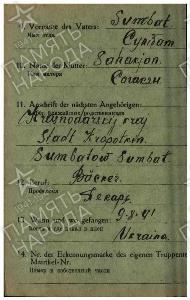 10. Vorname des Vaters: Sumbat
Имя отца Сумбат
10. Name der Mutter: Sahakjan.
Имя матери Сагакян
11. Anschrift der nächsten Angehörigen:
Krasnodarski kray
Stadt Kropotkin.
Sumbatow Sumbat
12. Beruf: Bäcker.
Профессия Пекарь
13. Wann und wo gefangen: 9.8.41
Когда и где взят в плен Ukraina
14. Nr. der Erkennungsmarke des eigenen Truppente
Matrikel-Nr.
Номер в собственной части
ПАМЯТЬ НАРОДА